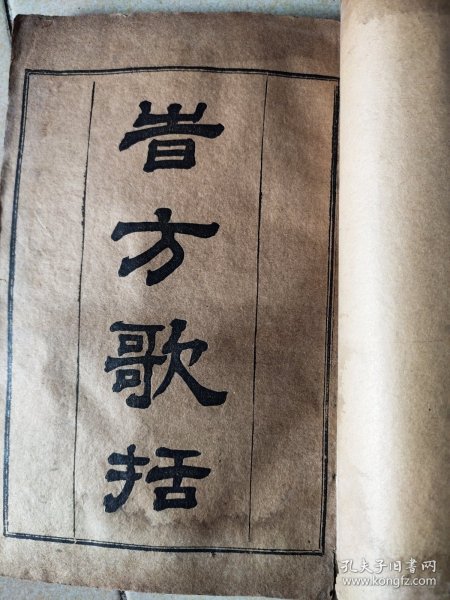 旹方歌括
孔夫子旧书网
www.kongfz.com